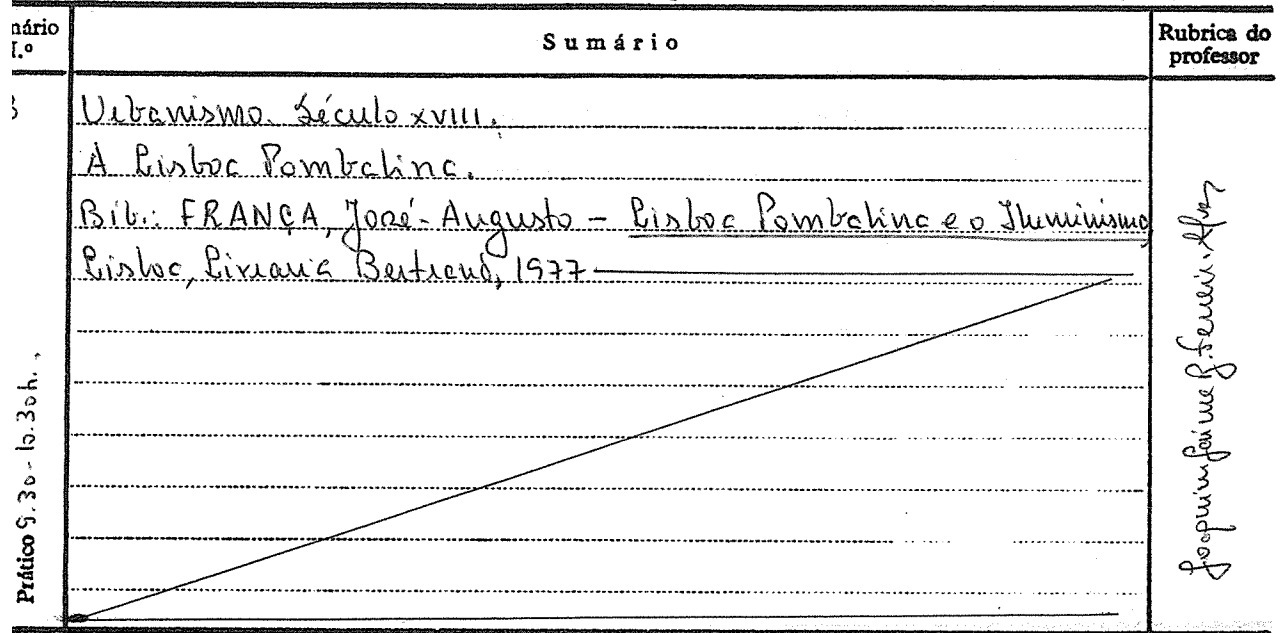 nário
N.º
Sumário
Rubrica do
professor
Urbanismo. Século XVIII.
A Lisboa Pombalina.
Bib.: FRANÇA, José-Augusto – Lisboa Pombalina e o Iluminismo,
Lisboa, Livraria Bertrand, 1977
Prático 9.30 - 10.30h.
Joaquim Jaime B. Ferreira-Alves